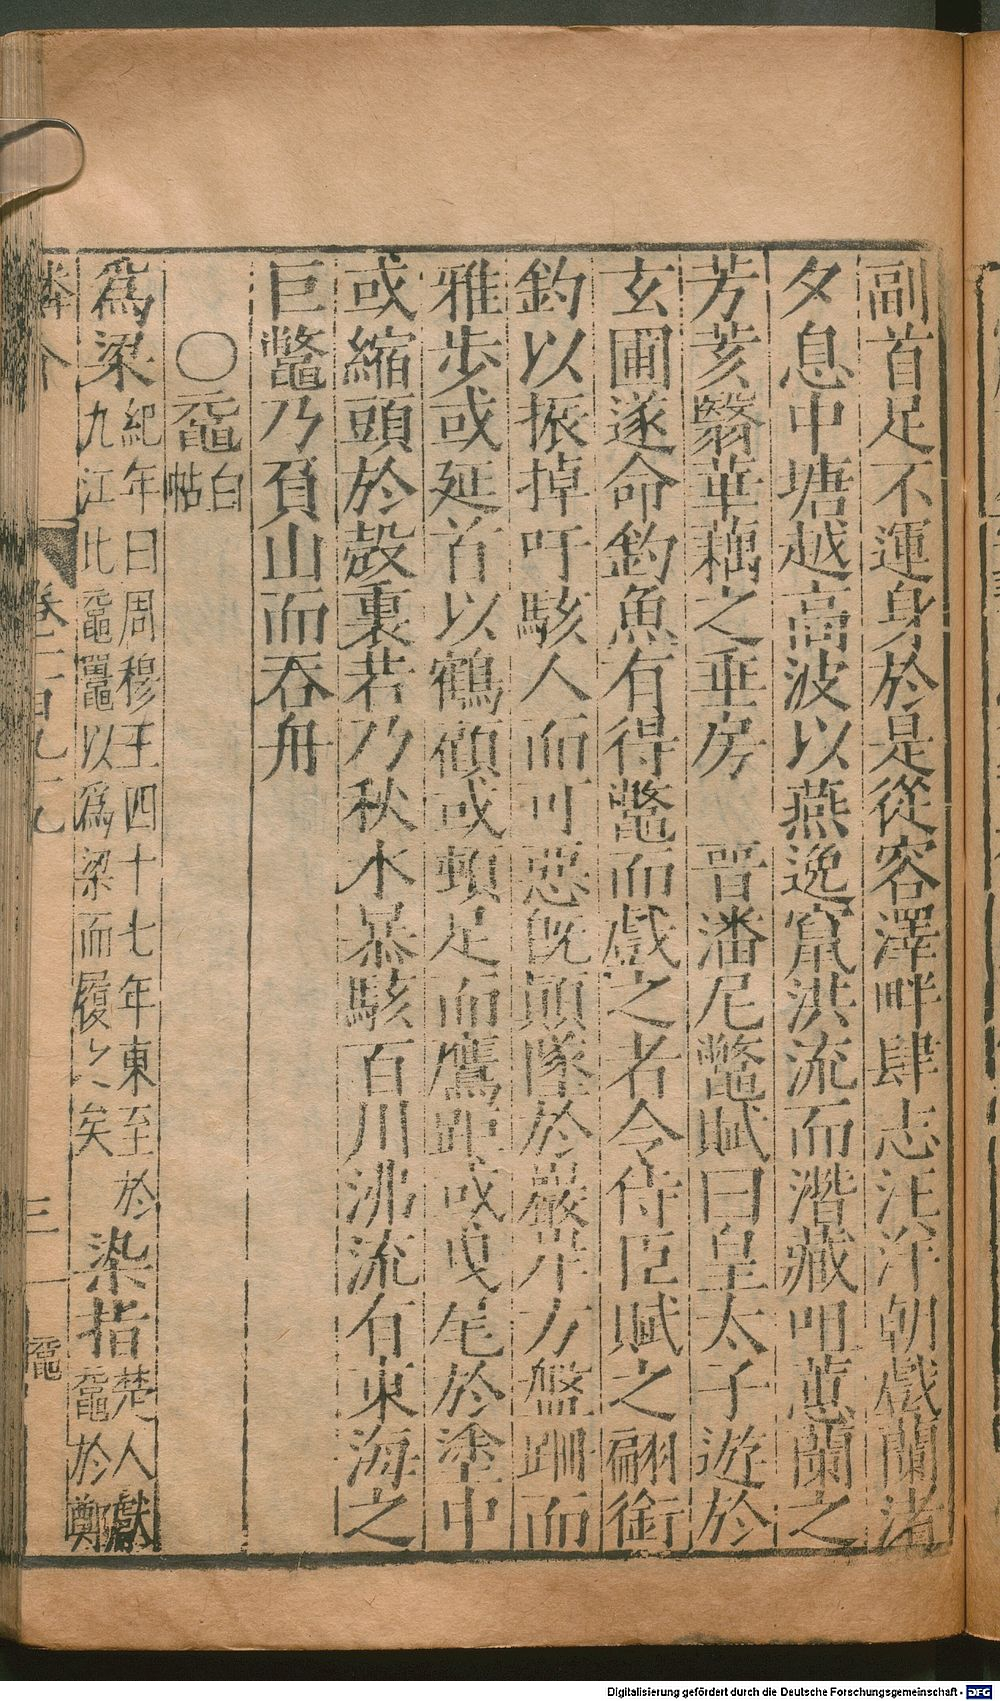 副首足不運身於是從容澤畔肆志汪洋朝戲蘭渚
夕息中塘越高波以燕逸竄洪流而潛藏咀蕙蘭之
芳荄翳華藕之垂房　晉潘尼鼈賦曰皇太子遊於
玄圃遂命釣魚有得鼈而戲之者令侍臣賦之翩銜
釣以振掉吁駭人而可惡既顛墜於巖岸方盤跚而
雅步或延首以鶴顧或頓足而鷹距或曳尾於塗中
或縮頭於殼裏若乃秋水暴駭百川沸流有東海之
巨鼈乃負山而吞舟
〇黿白帖
爲梁紀年曰周穆王四十七年東至於九江比黿鼉以爲梁而履之矣染指楚人獻黿於鄭
卷一百九九
三
黿
Digitalisierung gefördert durch die Deutsche Forschungsgemeinschaft - DFG